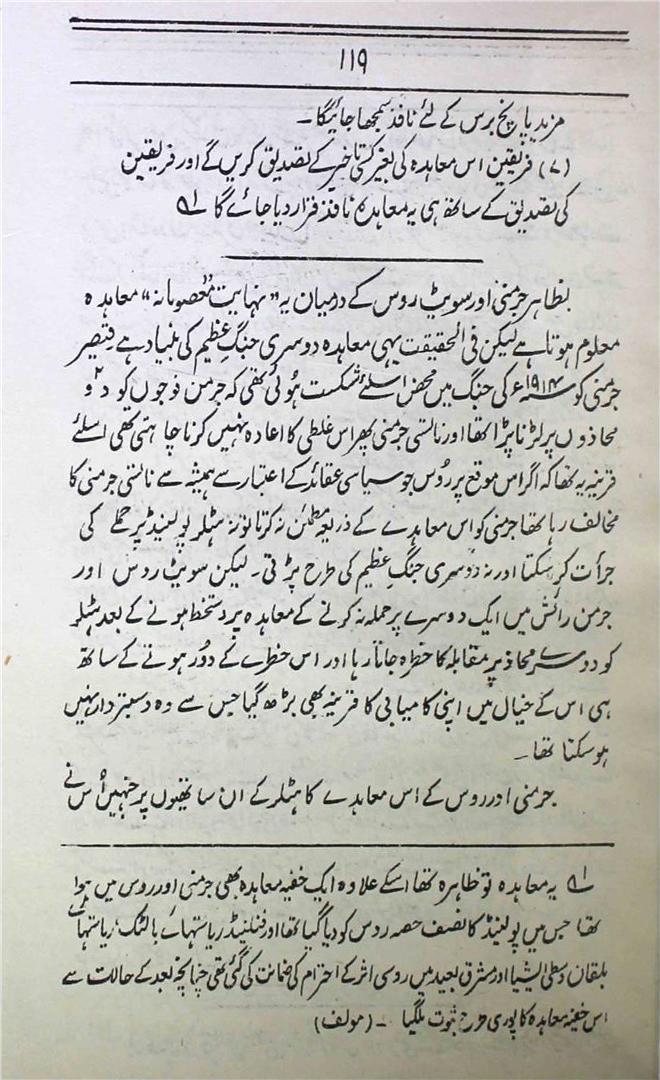 ۱۱۹
مزید پانچ برس کے لئے نافذ سمجھا جائیگا۔
(۷) فریقین اس معاہدہ کی بغیر کسی تاخیر کے تصدیق کریں گے اور فریقین
کی تصدیق کے ساتھ ہی یہ معاہدہ نافذ قرار دیا جائے گا ؂۱
بظاہر جرمنی اور سویٹ روس کے درمیان یہ "نہایت معصومانہ" معاہدہ
معلوم ہوتا ہے لیکن فی الحقیقت یہی معاہدہ دوسری جنگِ عظیم کی بنیاد ہے۔ قیصر
جرمنی کو ۱۹۱۴ء کی جنگ میں محض اسلئے شکست ہوئی تھی کہ جرمن فوجوں کو دو
محاذوں پر لڑنا پڑا تھا اور ناتسی جرمنی پھر اس غلطی کا اعادہ نہیں کرنا چاہتی تھی اسلئے
قرینہ یہ تھا کہ اگر اس موقع پر رُوس جو سیاسی عقائد کے اعتبار سے ہمیشہ سے ناتسی جرمنی کا
مخالف رہا تھا جرمنی کو اس معاہدے کے ذریعہ مطمئن نہ کرتا تو نہ ہٹلر پولینڈ پر حملے کی
جرأت کر سکتا اور نہ دوسری جنگِ عظیم کی طرح پڑتی۔ لیکن سویٹ روس اور
جرمن رائش میں ایک دوسرے پر حملہ نہ کرنے کے معاہدہ پر دستخط ہونے کے بعد ہٹلر
کو دوسرے محاذ پر مقابلہ کا خطرہ جاتا رہا اور اس خطرے کے دُور ہونے کے ساتھ
ہی اس کے خیال میں اپنی کامیابی کا قرینہ بھی بڑھ گیا جس سے وہ دستبردار نہیں
ہو سکتا تھا۔
جرمنی اور روس کے اس معاہدے کا ہٹلر کے ان ساتھیوں پر جنہیں اُس نے
؂۱ یہ معاہدہ تو ظاہرہ تھا اسکے علاوہ ایک خفیہ معاہدہ بھی جرمنی اور روس میں ہوا
تھا جس میں پولینڈ کا نصف حصہ روس کو دیا گیا تھا اور فنلینڈ ریاستہائے بالٹک، ریاستہائے
بلقان وسطی ایشیا اور مشرق بعید میں روسی اثر کے احترام کی ضمانت کی گئی تھی چنانچہ بعد کے حالات سے
اس خفیہ معاہدہ کا پوری طرح ثبوت ملگیا ۔ (مولف)